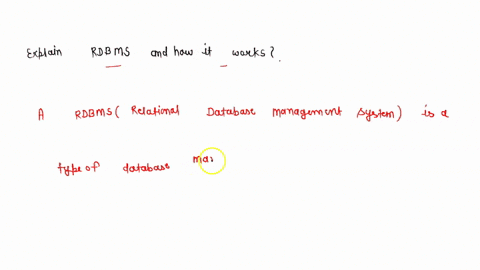 Explain RDBMS and how it works?.
A RDBMS( Relational Database management system) is a
type of database ma